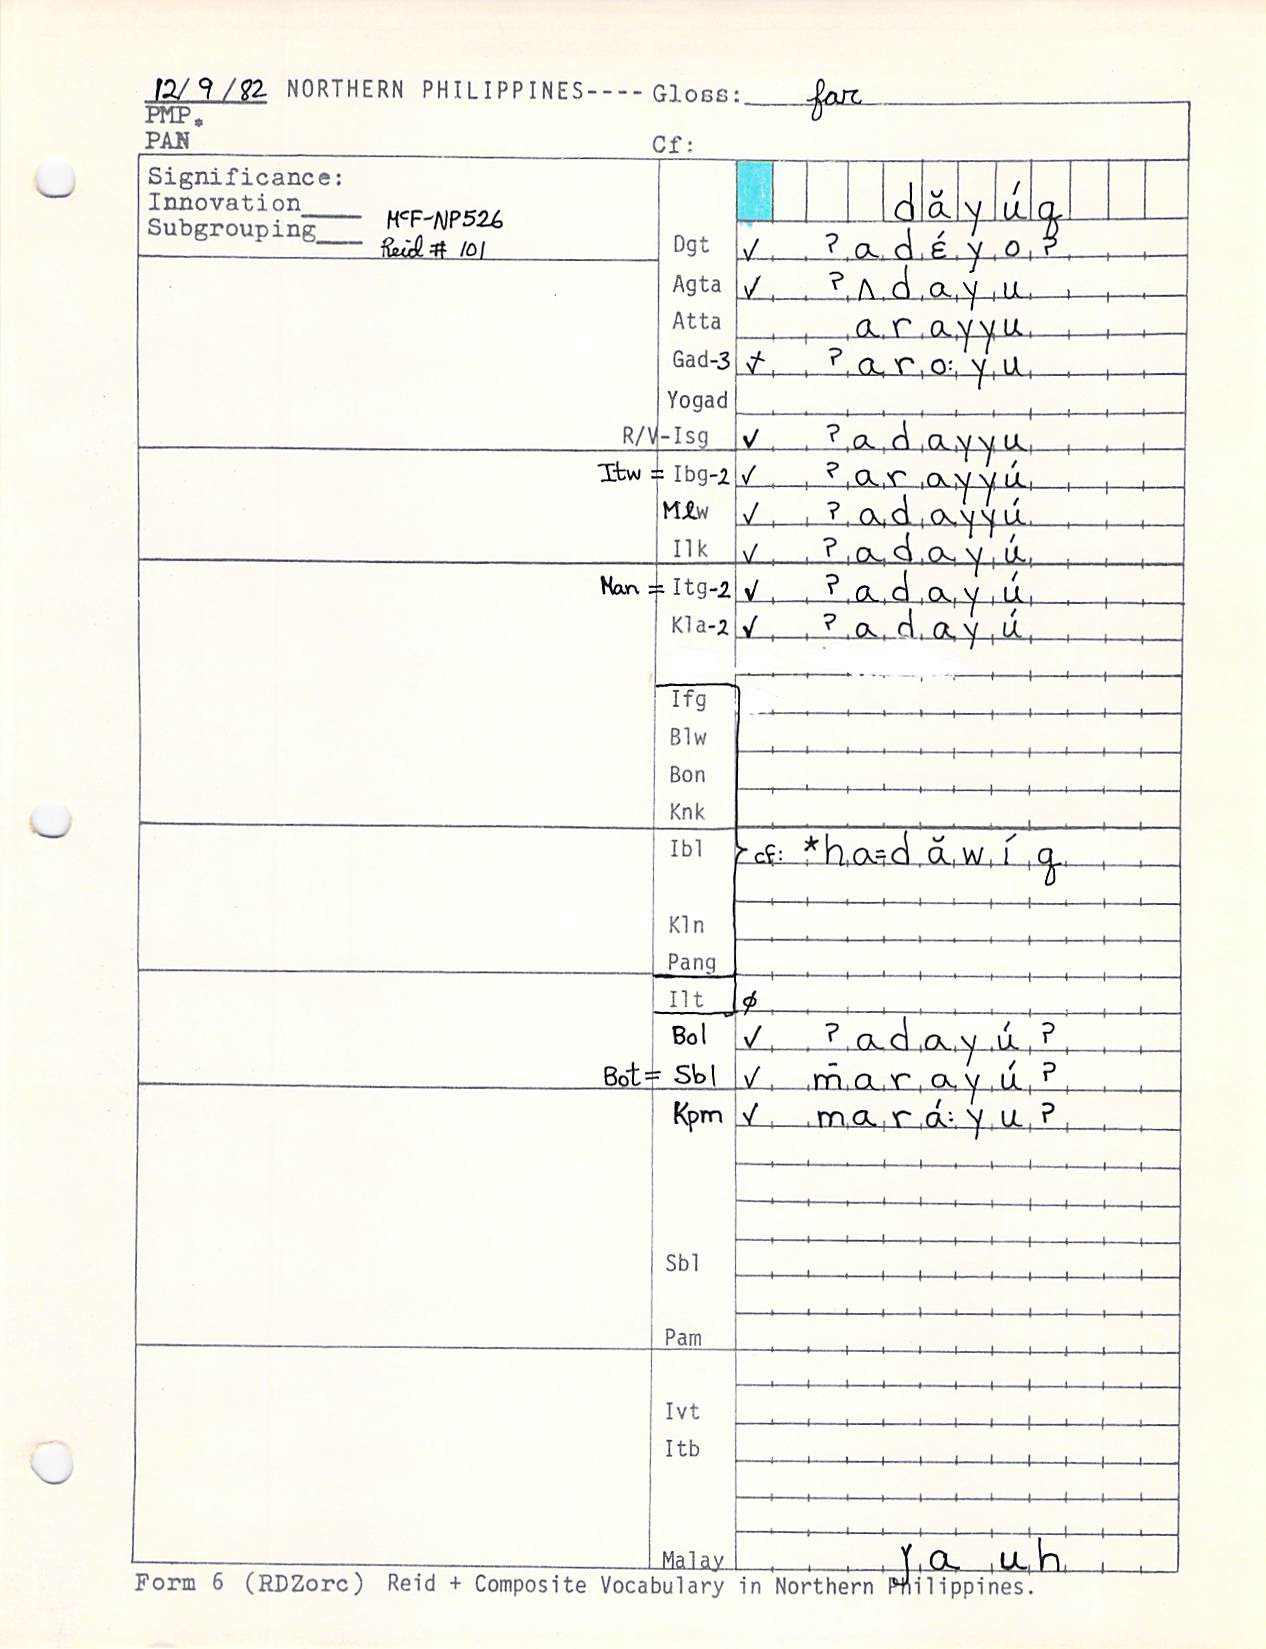 12/9/82 NORTHERN PHILIPPINES---- Gloss: far
PMP.
PAN Cf:
Significance:
Innovation____
Subgrouping___
McF-NP526
Reid # 101
dăyúq
Dgt ✓ ʔadéyoʔ
Agta ✓ ʔʌdayu
Atta arayyu
Gad-3 + ʔaro:yu
Yogad
R/V-Isg ✓ ʔadayyu
Itw = Ibg-2 ✓ ʔarayyú
Mlw ✓ ʔadayyú
Ilk ✓ ʔadayú
Man = Itg-2 ✓ ʔadayú
Kla-2 ✓ ʔadayú
Ifg
Blw
Bon
Knk
Ibl cf: *ha=dăwíq
Kln
Pang
Ilt ø
Bol ✓ ʔadayúʔ
Bot = Sbl ✓ m̄arayúʔ
Kpm ✓ mará:yuʔ
Sbl
Pam
Ivt
Itb
Malay ja uh
Form 6 (RDZorc) Reid + Composite Vocabulary in Northern Philippines.